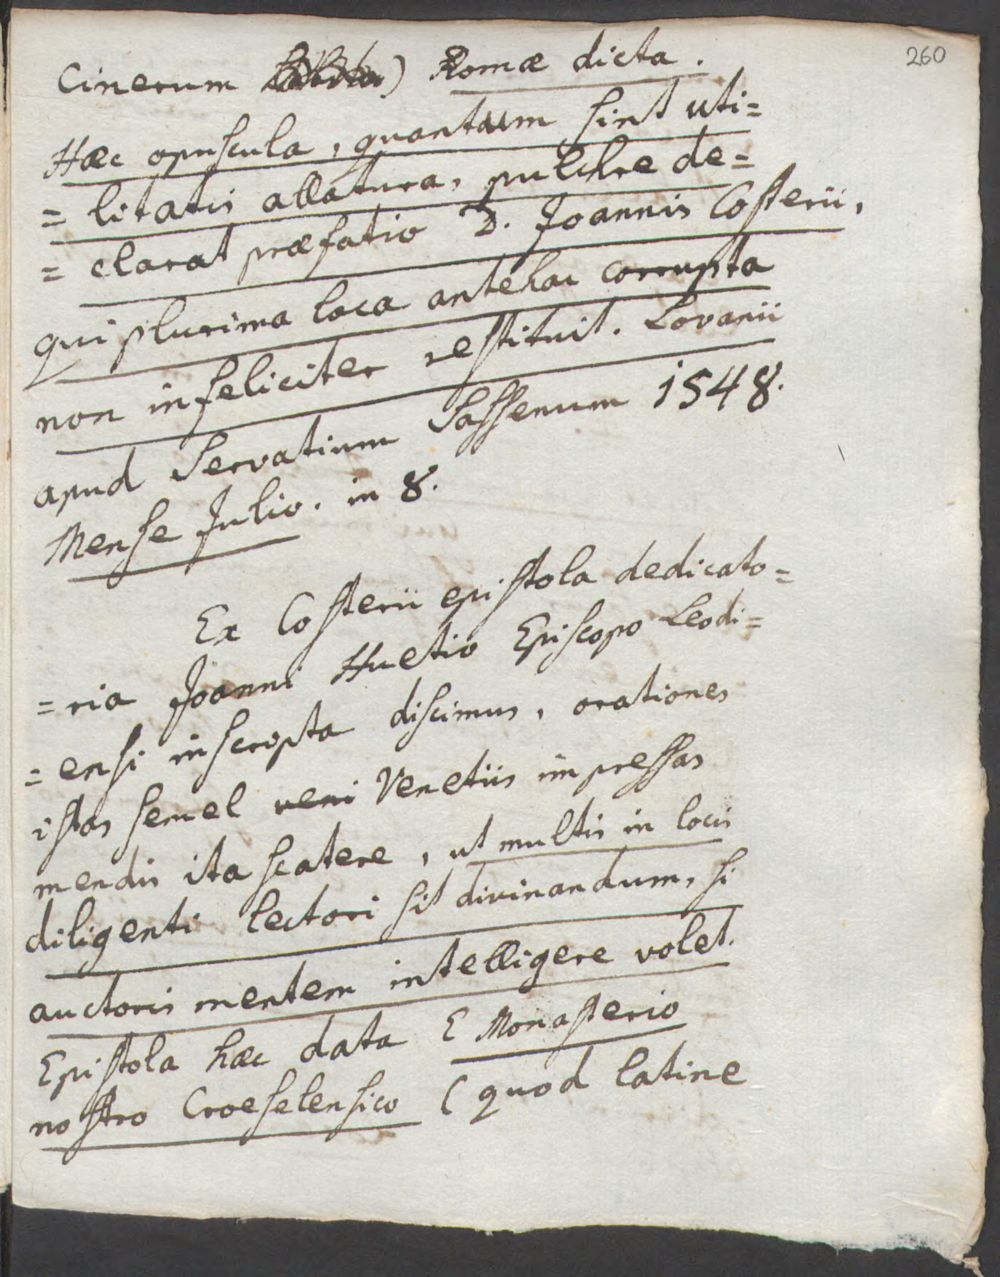 260
Cinerum ) Romæ dicta.
Hæc opuscula, quantum sint uti=
= litatis allatura, pulchre de=
= clarat præfatio D. Joannis Costerii,
qui plurima loca antehac corrupta
non infeliciter restituit. Lovanii
apud Servatium Sassenum 1548.
Mense Julio. in 8.
Ex Costerii epistola dedicato=
= ria Joanni Huetio Episcopo Leodi=
= ensi inscripta discimus, orationes
istas semel veni Venetiis impressas
mendis ita scatere, ut multis in locis
diligenti lectori sit divinandum, si
auctoris mentem intelligere volet.
Epistola hæc data E Monasterio
nostro Croeselensico (quod latine